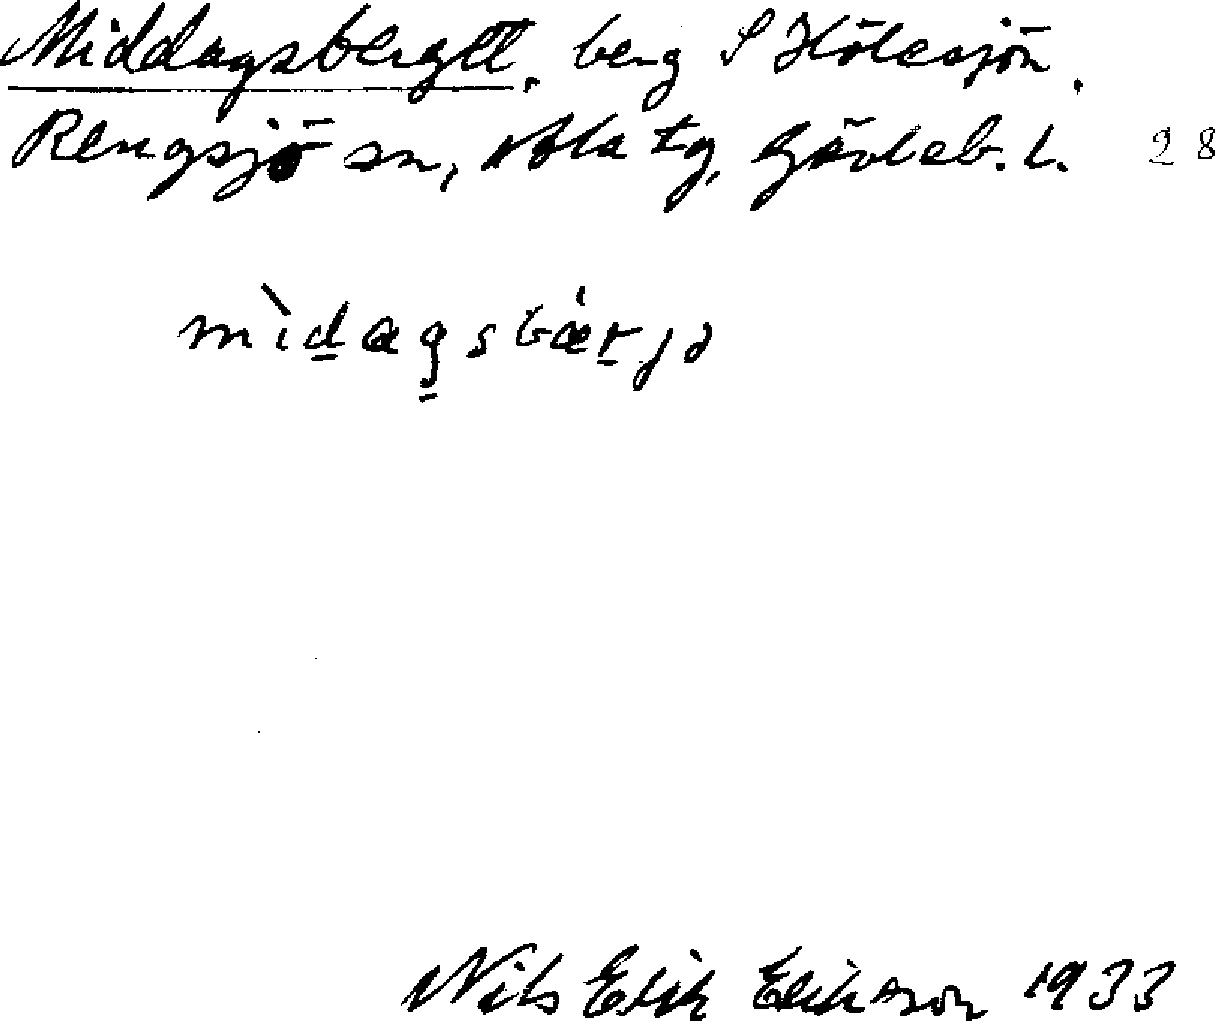 Middagsberget, berg S Hölesjön,
Rengsjö sn, Ala tg, Gävleb. l. 28
mìdagsbærjə
Nils Erik Erikson 1933